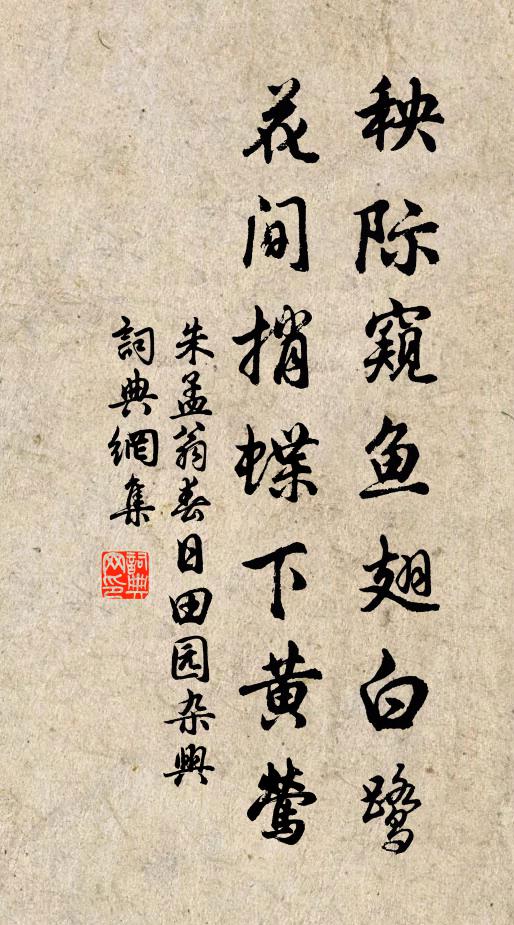 秧际窥鱼翅白鹭
花间捎蝶下黄莺
朱孟翁春日田园杂興
詞典網集
詞典网印